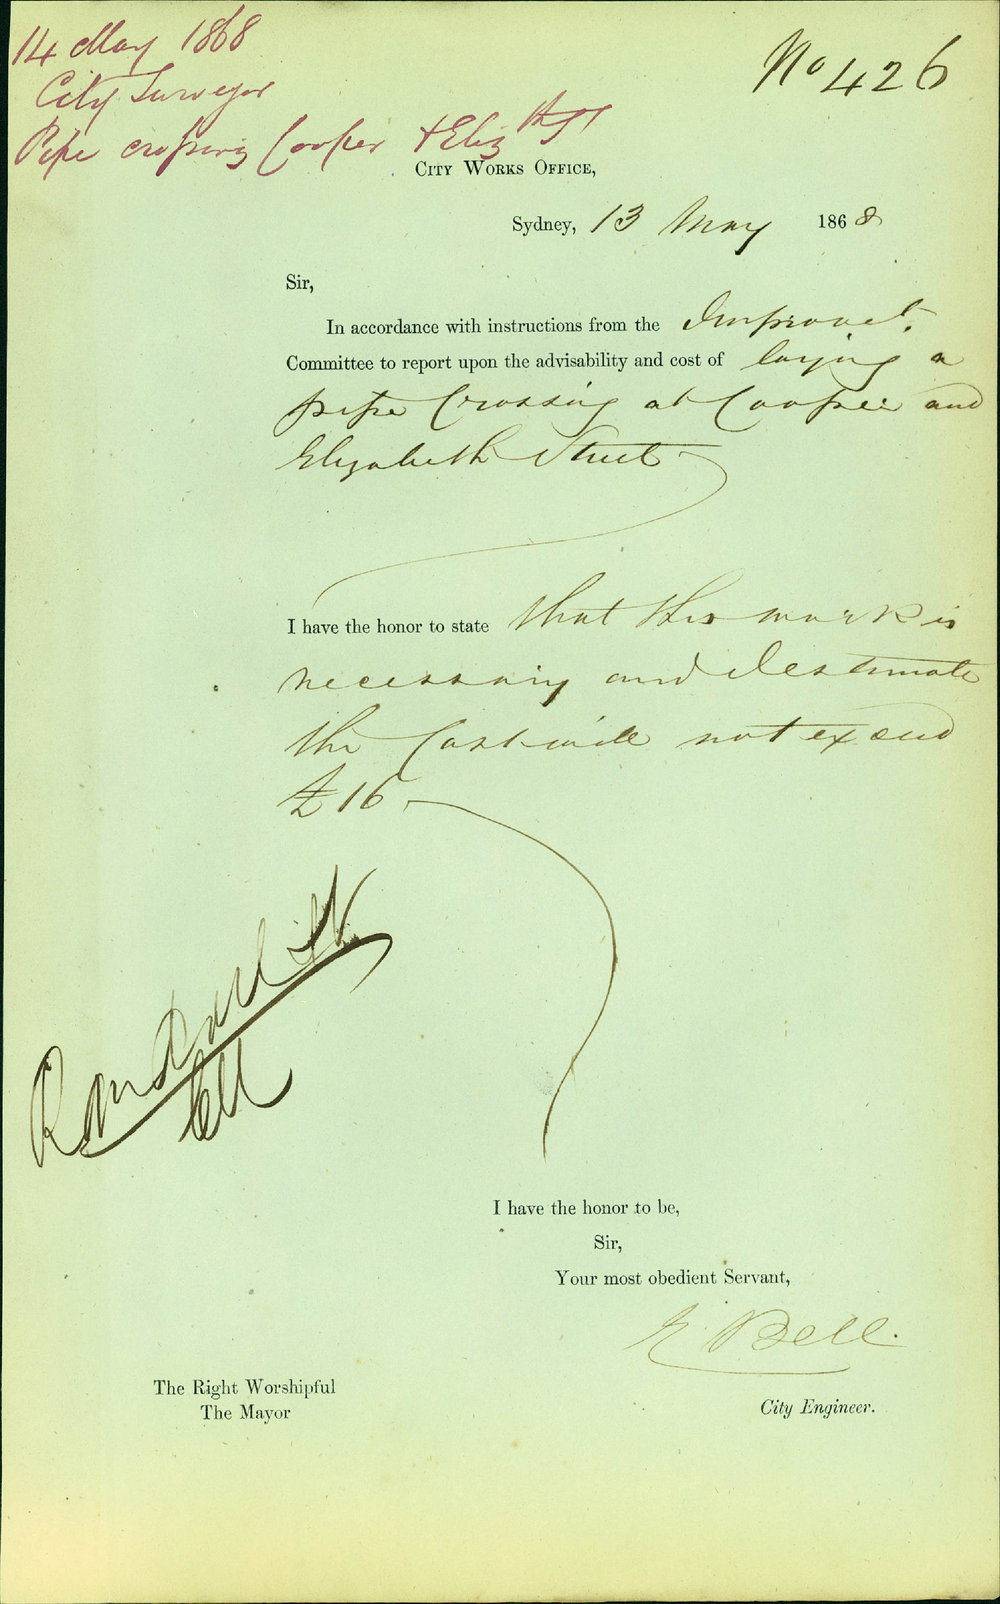 14 May 1868
No 426
City Surveyor
Pipe crossing Cooper & Elizth St
City Works Office,
Sydney, 13 May 1868
Sir,
In accordance with instructions from the Improvet.
Committee to report upon the advisability and cost of laying a
pipe Crossing at Cooper and
Elizabeth Street
I have the honor to state that this work is
necessary and I estimate
the Cost will not exceed
£16
I have the honor to be,
Sir,
Your most obedient Servant,
E. Bell.
The Right Worshipful
The Mayor
City Engineer.